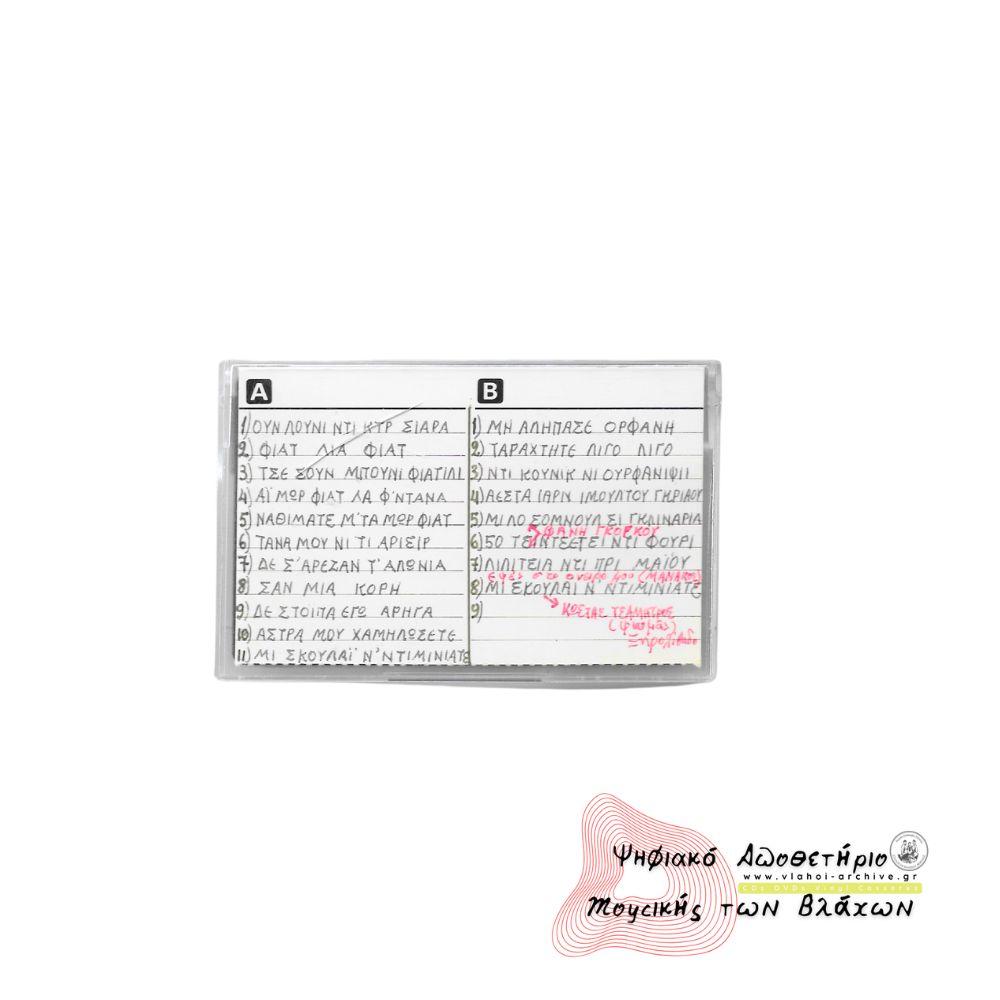 A
1) ΟΥΝ ΛΟΥΝΙ ΝΤΙ ΚΤΡ ΣΙΑΡΑ
2) ΦΙΑΤ ΛΙΑ ΦΙΑΤ
3) ΤΣΕ ΣΟΥΝ ΜΠΟΥΝΙ ΦΙΑΤΙΛΙ
4) ΑΪ ΜΩΡ ΦΙΑΤ ΛΑ Φ'ΝΤΑΝΑ
5) ΝΑΘΙΜΑΤΕ Μ'ΤΑ ΜΩΡ ΦΙΑΤ
6) ΤΑΝΑ ΜΟΥ ΝΙ ΤΙ ΑΡΙΣΙΡ
7) ΔΕ Σ'ΑΡΕΖΑΝ Τ'ΑΛΩΝΙΑ
8) ΣΑΝ ΜΙΑ ΚΟΡΗ
9) ΔΕ ΣΤΟΙΠΑ ΕΓΩ ΑΡΗΓΑ
10) ΑΣΤΡΑ ΜΟΥ ΧΑΜΗΛΩΣΕΤΕ
11) ΜΙ ΣΚΟΥΛΑΪ Ν'ΝΤΙΜΙΝΙΑΤΕ
B
1) ΜΗ ΑΛΗΠΑΣΕ ΟΡΦΑΝΗ
2) ΤΑΡΑΧΤΗΤΕ ΛΙΓΟ ΛΙΓΟ
3) ΝΤΙ ΚΟΥΝΙΚ ΝΙ ΟΥΡΦΑΝΙΨΙΙ
4) ΑΕΣΤΑ ΙΑΡΝ ΙΜΟΥΛΤΟΥ ΓΗΡΙΑΟΥ
5) ΜΙ ΛΟ ΣΟΜΝΟΥΛ ΣΙ ΓΚΛΙΝΑΡΙΑ
ΦΑΝΗ ΓΚΟΡΚΟΥ
6) 50 ΝΤΙ ΦΟΥΡΙ
7) ΛΙΛΙΤΣΙΑ ΝΤΙ ΠΡΙ ΜΑΪΟΥ
στο όνειρο μου (ΜΑΝΑΚΟΣ)
8) ΜΙ ΣΚΟΥΛΑΙ Ν'ΝΤΙΜΙΝΙΑΤΕ
9)
ΚΩΣΤΑΣ
Ξηρολίβαδο
Ψηφιακό Αποθετήριο
www.vlahoi-archive.gr
CDs DVDs Vinyl Cassetes
Μουσικής των Βλάχων